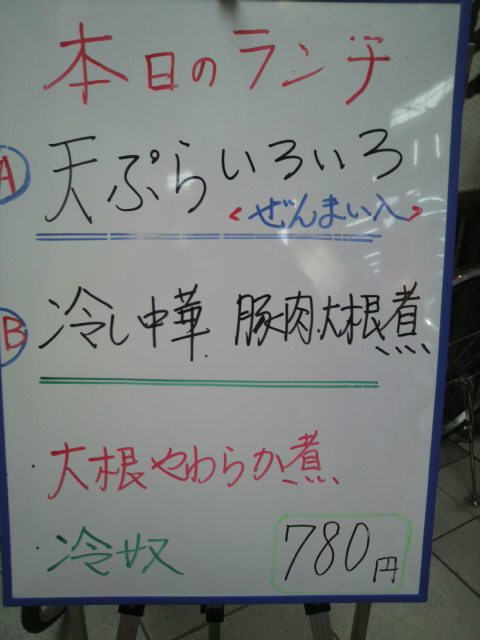 本日のランチ
A 天ぷらいろいろ
<ぜんまい入>
B 冷し中華 豚肉大根煮
・大根やわらか煮
・冷奴
780円